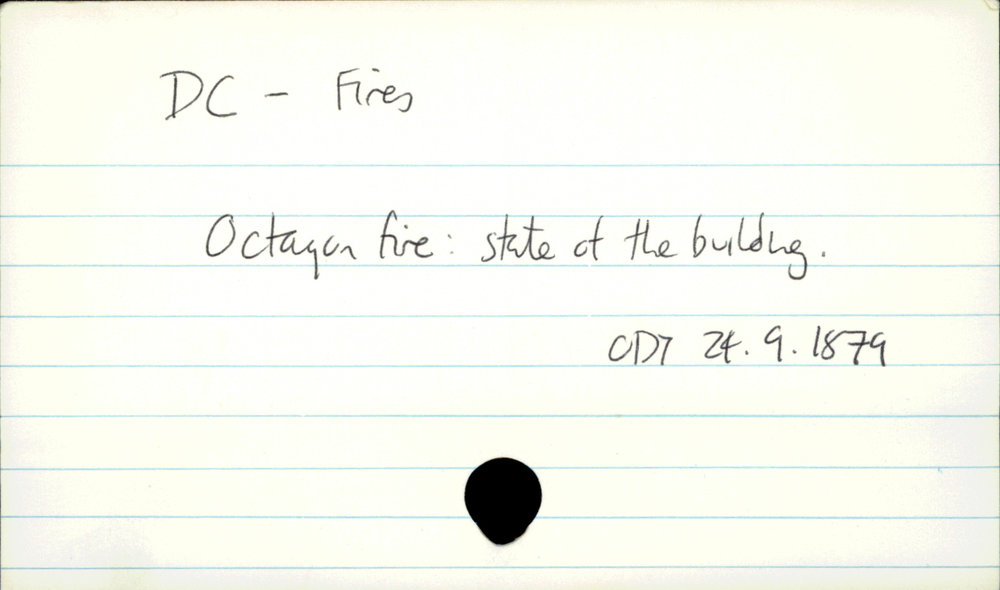 DC - Fires
Octagon fire: state of the building.
ODT 24.9.1879